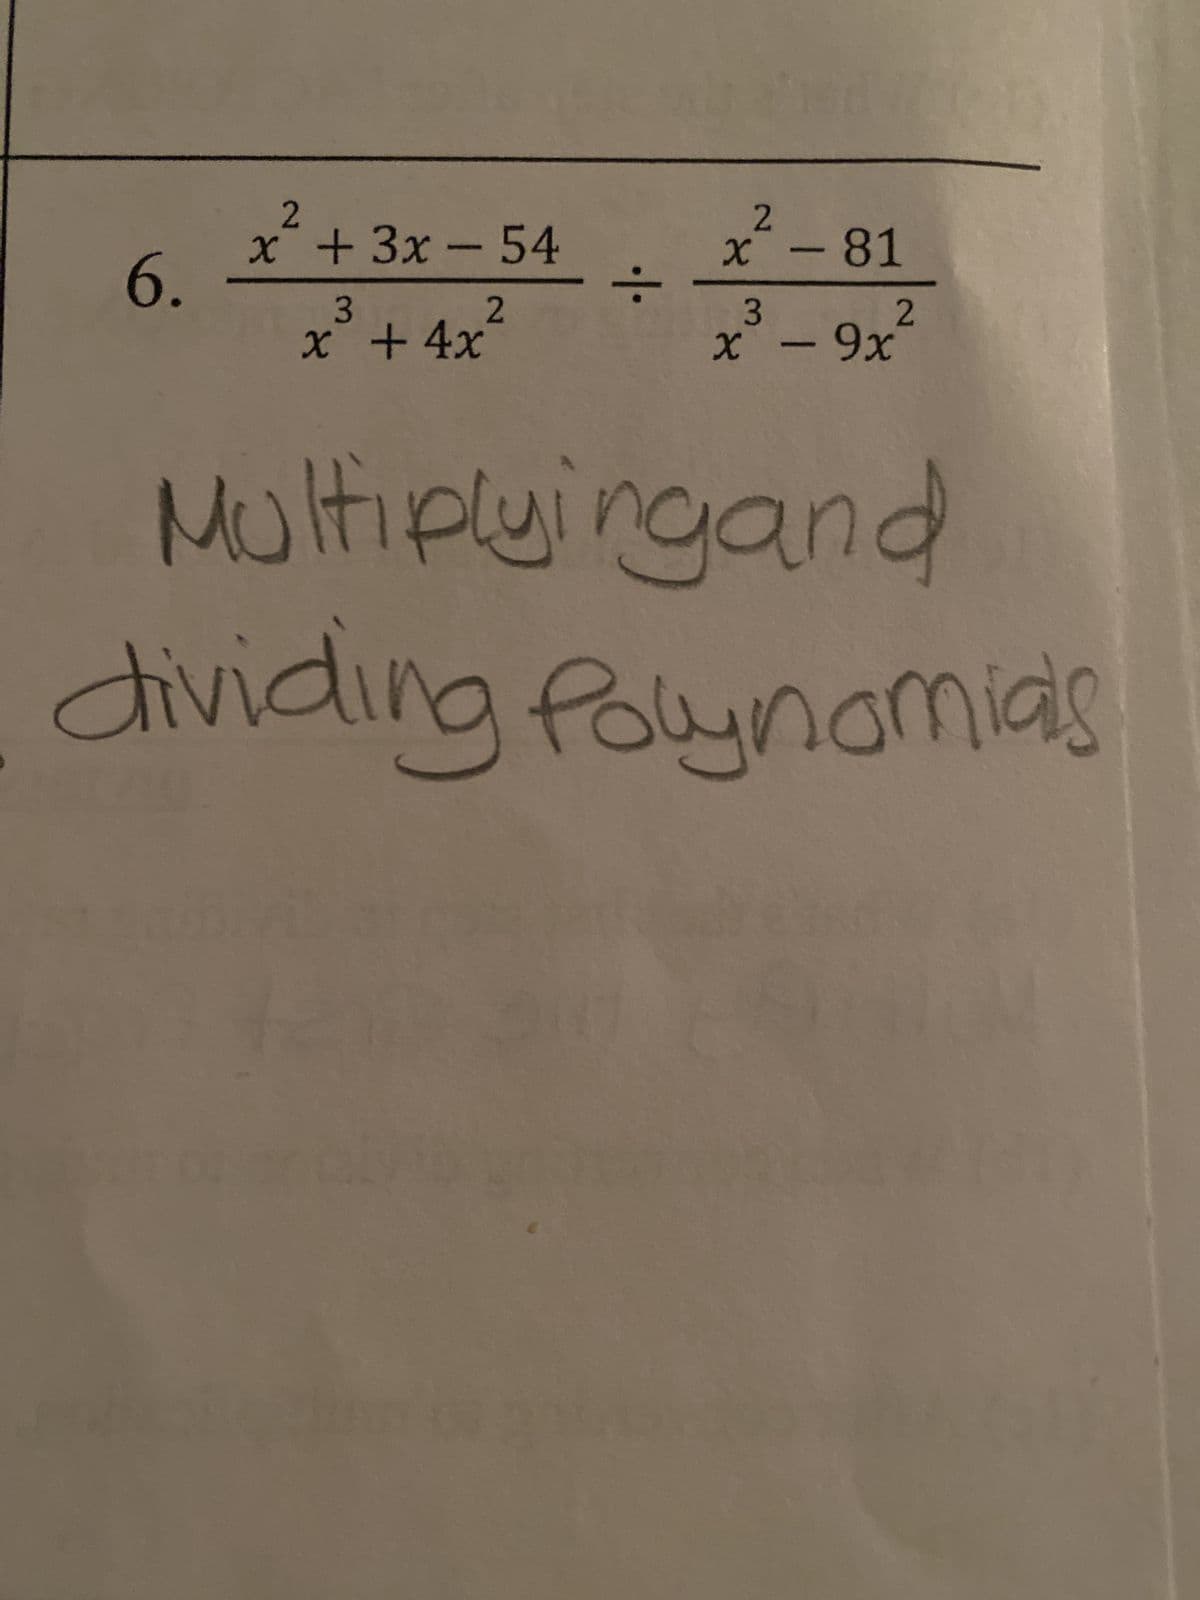 6. x² + 3x – 54 / x³ + 4x² ÷ x² – 81 / x³ – 9x²
Multiplying and
dividing Polynomials